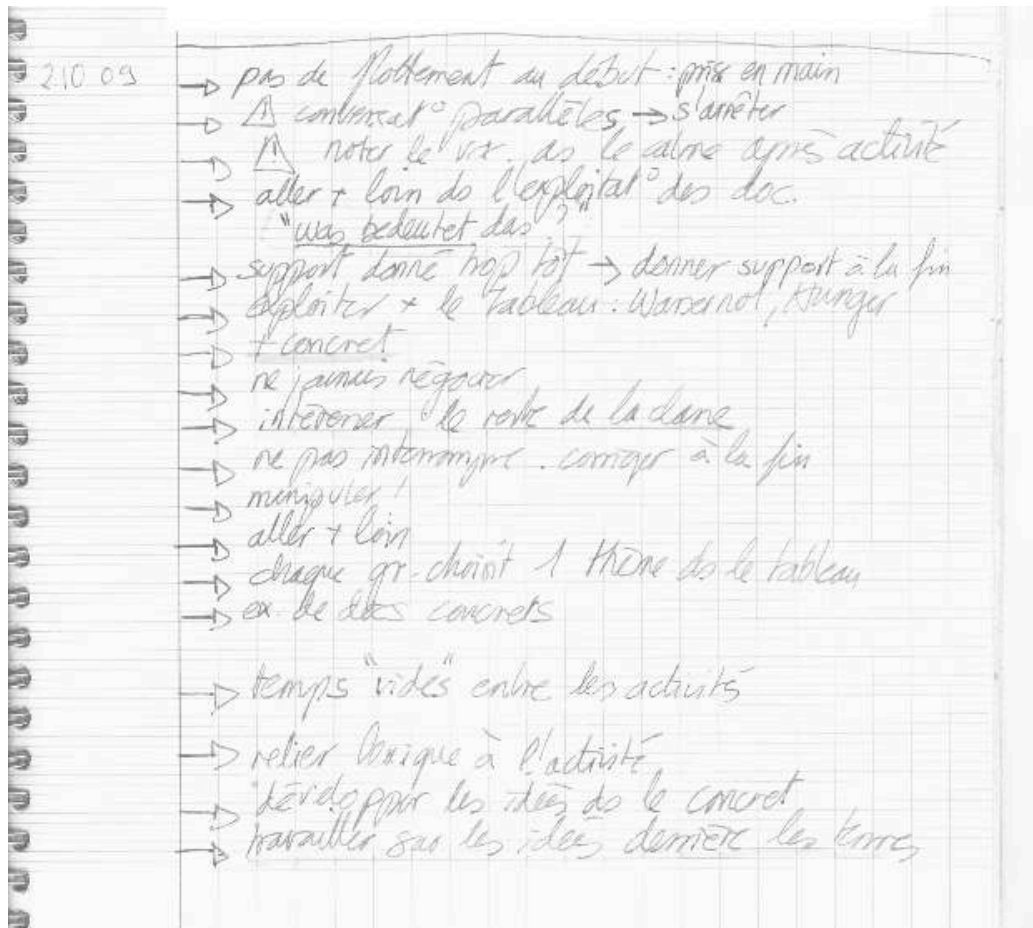 21.0 09
→ pas de flottement au début : prise en main
→ ⚠ conversat° parallèles → s'arrêter
→ ⚠ noter le ds le calme après activité
→ aller + loin ds l'exploitat° des doc.
"was bedeutet das ?"
→ support donné trop tôt → donner support à la fin
→ exploiter + le tableau : Wassernot, Hunger
→ + concret
→ ne jamais négocier
→ le reste de la classe
→ ne pas interrompre. corriger à la fin
→ manipuler !
→ aller + loin
→ chaque gr. choisit 1 thème ds le tableau
→ ex de docs concrets
→ temps "vides" entre les activités
→ relier lexique à l'activité
→ développer les idées ds le concret
→ travailler sur les idées derrière les termes